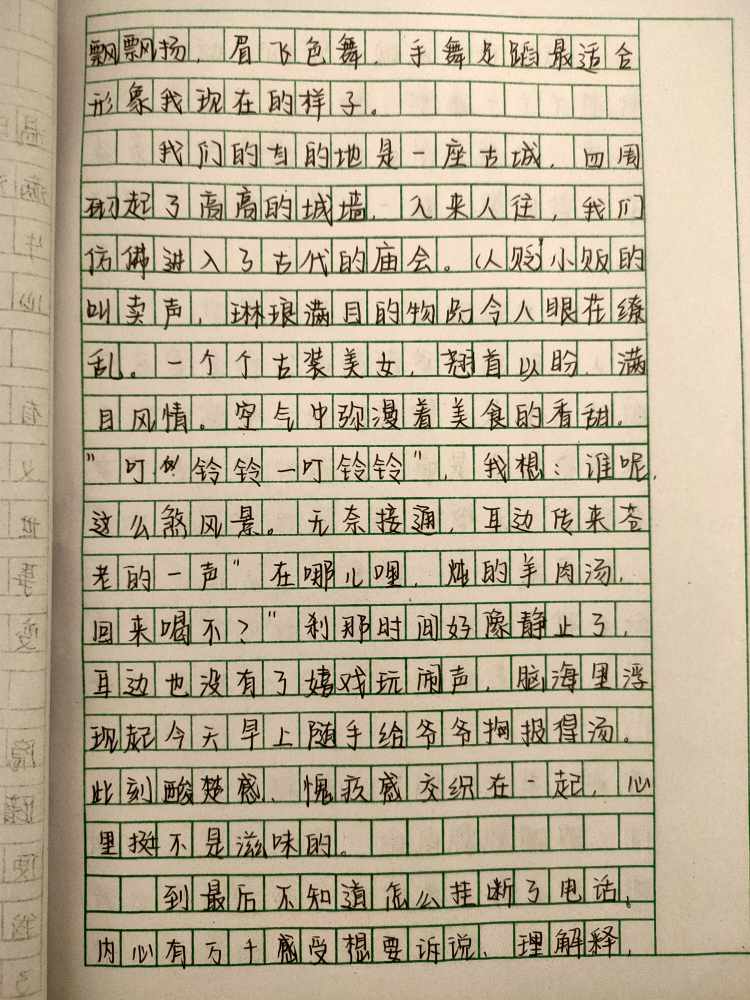 飘飘扬，眉飞色舞，手舞足蹈最适合
形象我现在的样子。
我们的目的地是一座古城，四周
砌起了高高的城墙，人来人往，我们
仿佛进入了古代的庙会。(人贩)小贩的
叫卖声，琳琅满目的物品令人眼花缭
乱。一个个古装美女，翘首以盼，满
目风情。空气中弥漫着美食的香甜。
"叮铃铃—叮铃铃"，我想：谁呢，
这么煞风景。无奈接通，耳边传来苍
老的一声"在哪儿哩，炖的羊肉汤，
回来喝不？"刹那时间好像静止了，
耳边也没有了嬉戏玩闹声，脑海里浮
现起今天早上随手给爷爷拘报得汤。
此刻酸楚感、愧疚感交织在一起，心
里挺不是滋味的。
到最后不知道怎么挂断了电话，
内心有万千感受想要诉说、理解释，